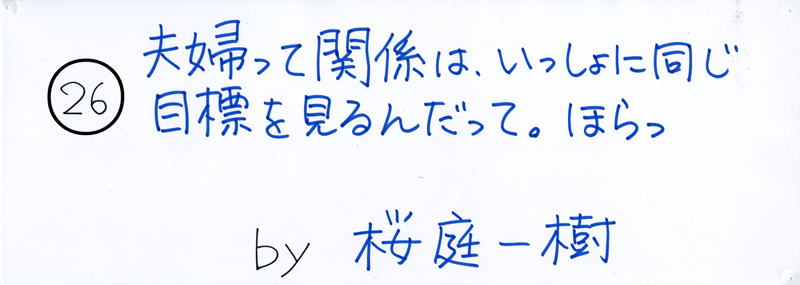 26
夫婦って関係は、いっしょに同じ
目標を見るんだって。ほらっ
by 桜庭一樹